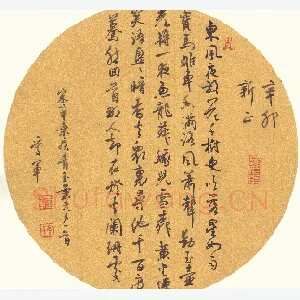 辛卯
新正
東風夜放花千樹更吹落星如雨
寶馬雕車香滿路鳳簫聲動玉壺
光轉一夜魚龍舞蛾兒雪柳黃金縷
笑語盈盈暗香去眾裏尋他千百度
驀然回首那人卻在燈火闌珊處
宋辛棄疾青玉案